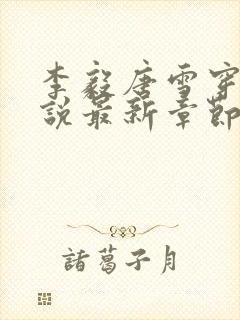 李毅唐雪穿
说最新章节
諸葛子月